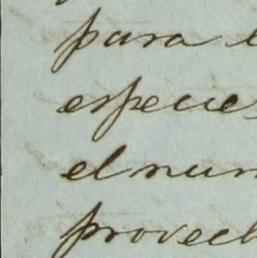 para e
especies
el num
provech